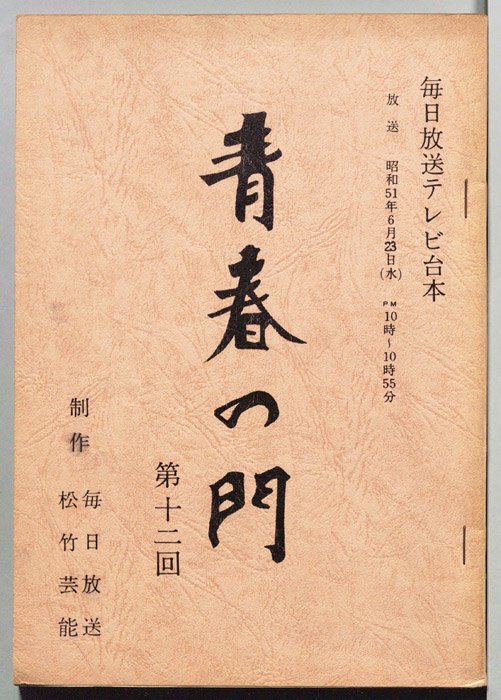 毎日放送テレビ台本
放送 昭和51年6月23日(水) PM10時~10時55分
青春の門
第十二回
制作 毎日放送
松竹芸能